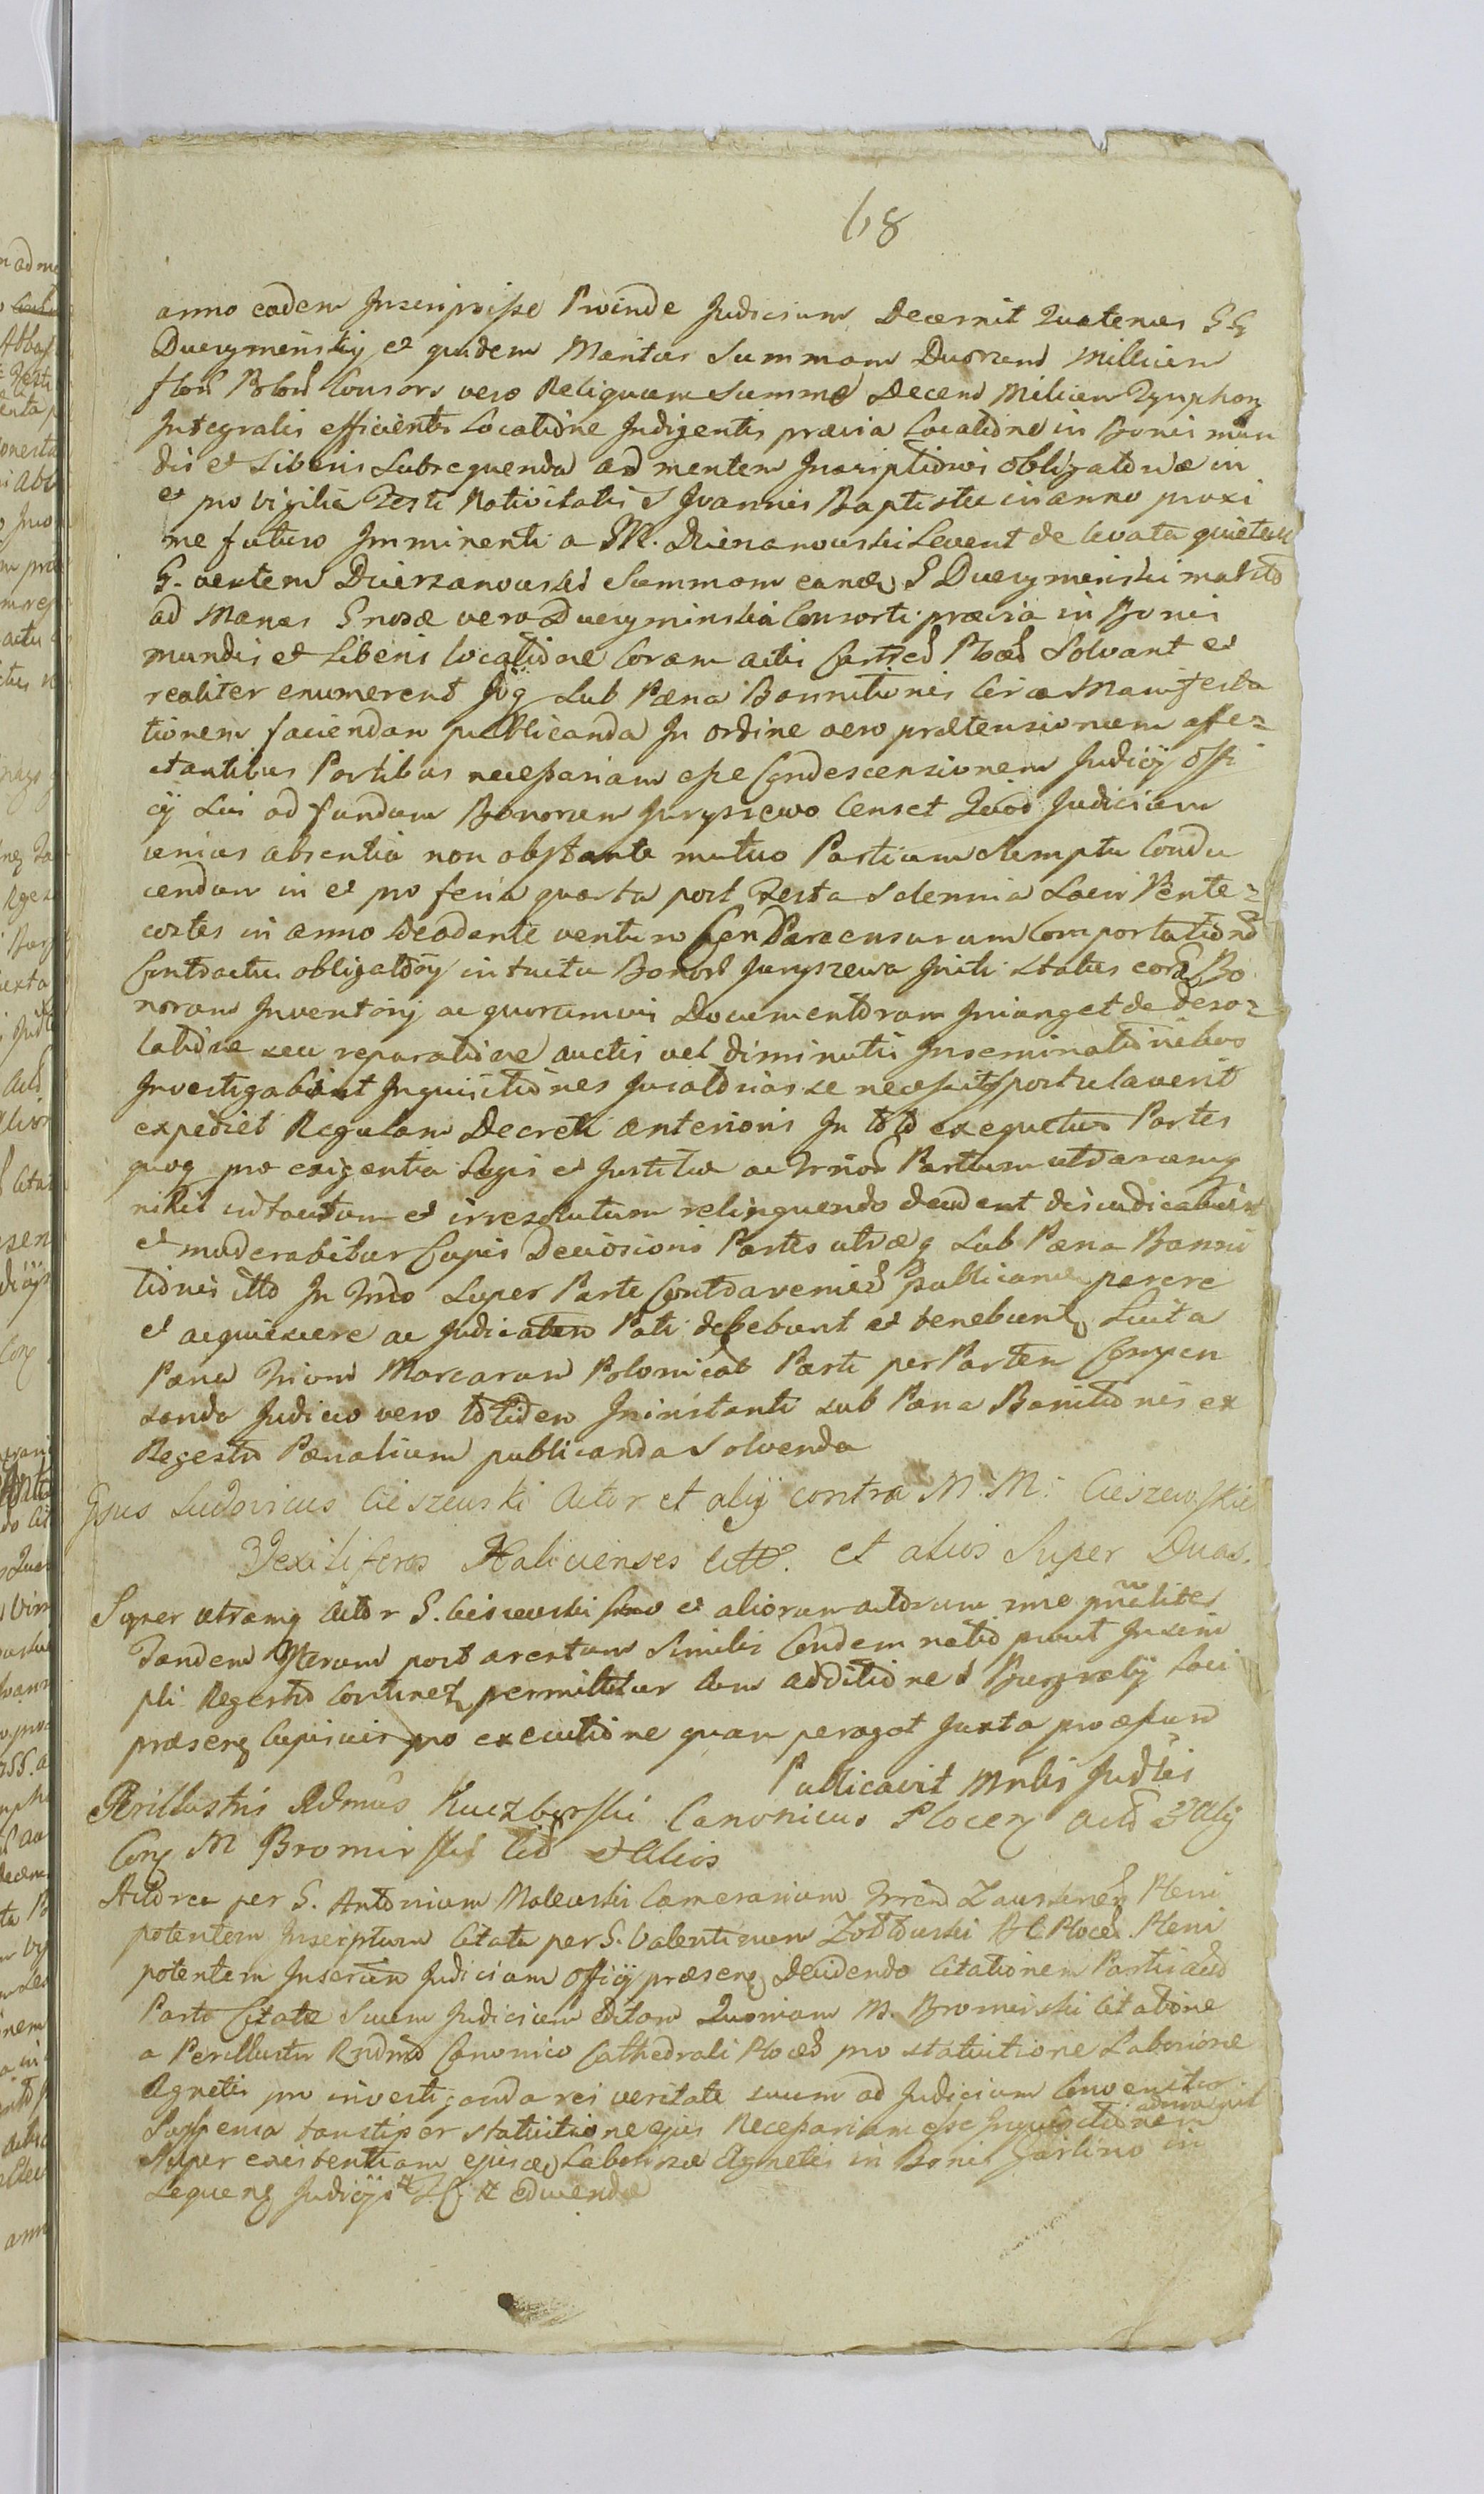 68
anno eodem Inscripsisse Proinde Judicium Decernit Quatenus GG
Duczyminskij et quidem Maritus Summam Duorum Millium
flor Polon Consors vero Reliquam Summæ Decem Milium Tynphon
Integralis efficientis Locatione Indigentis prævia Locatione in Bonis mun
dis et Liberis Subsequenda ad mentem Inscriptionis obligatoriæ in
et pro vigilia Festi Nativitatis S Joannis Baptistæ in anno proxi
me futuro Imminenti a M. Dzierzanowski Levent de levata quietent
G. autem Dzierzanowski Summam eandem G Duczyminski marito
ad Manus Gnosæ vero Duczyminska Consorti prævia in Bonis
mundis et Liberis locatione Coram actis Castren Plocen Solvant et
realiter enumerent Idq Sub Pæna Bannitionis Circa Manifesta
tionem faciendam publicanda In ordine vero prætensionum affe=
ctantibus Partibus necessariam esse Condescensionem Judicij Offi
cij Sui ad fundum Bonorum Juryszewo Censet Quod Judicium
unius absentia non obstante mutuo Partium Sumptu Condu
cendum in et pro feria quarta post Festa Solennia Sacri Pente=
costes in anno Deo dante venturo Comportatione
Contractus obligatorij intuitu Bonor Juryszewa Initi status eord Bo
norum Inventorij ac quorumvis Documentorum Injunget de deso=
latione seu reparatione auctis vel diminutis Inseminationibus
Investigabit Inquisitiones Juratorias si necessitas postulaverit
expediet Regulam Decreti anterioris In toto exequetur Partes
quoq pro exigentia Legis et Justitiæ ac Partium utrarumq
nihil intactum et irresolutum relinquendo dijudicabit
et moderabitur Cujus Decisioni Partes utræq Sub Pæna Banni
tionis itto In Tmo Super Parte Contravenien publicanda parere
et acquiescere ac Judicatum Pati debebunt et tenebunt Luita
Pæna Trium Marcarum Polonical Parti per Partem Compen
sanda Judicio vero totidem Ininstanti sub Pæna Banitionis ex
Regestro Pænalium publicanda Solvenda
Gsus Ludovicus Cieszewski Actor et alij contra M. M. Cieszewskie
Vexiliferos Halicienses citt. et alios Super Duas.
Super utramq Actor G. Cieszewski suo et aliorum actorum nne pnaliter
Tandem Iterum post arestum Similis Condemnatio prout Inscri
pti Regestro Continet permittitur Cum additione Burgrabij Loci
præsens Cujusvis pro executione quam peragat Juxta præfun
Publicavit Mnlis Judlis
Perillustris Rdmus Kuczborski Canonicus Plocen Act et Alij
Con M Bromirski Cit et Alios
Actorea per G. Antonium Malewski Camerarium Zauskrzen Pleni
potentem Inscriptum Citata per G. Valentinum Plocen Pleni
potentem Inscriptum Judicium Officij præsens Decidendo Citationem Partis act
Parti Citatæ Suum Judicium editam Quoniam M. Bromirski Citatione
a Perillustri Rndmo Canonico Cathedrali Plocen pro statuitione Laboriosæ
Agnetis pro investiganda rei veritate suum ad Judicium Convenitur
Suspensa tantisper statuitione ejus Necessariam esse Inquisitionem adinvenit
Super existentiam ejusdem Laboriosæ Agnetis in Bonis Jarlino in
Sequens Judicijs educenda